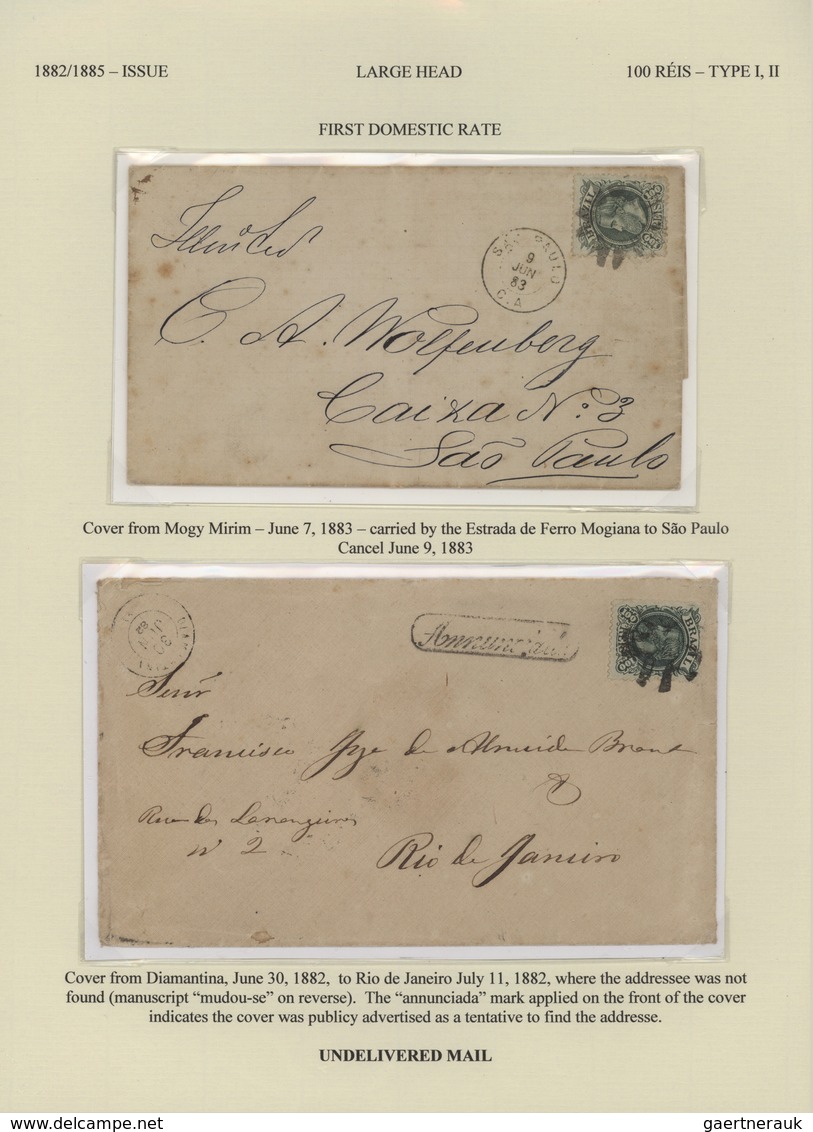 1882/1885 – ISSUE LARGE HEAD 100 RÉIS – TYPE I, II
FIRST DOMESTIC RATE
BRAZIL
SÃO PAULO
9
JUN
83
C.A
C. A. Wolfenberg
Caixa N.º 3
São Paulo
Cover from Mogy Mirim – June 7, 1883 – carried by the Estrada de Ferro Mogiana to São Paulo
Cancel June 9, 1883
Annunciada
BRAZIL
Senr
Francisco de Almeida Brant
Rua das Larangeiras
nº 2
Rio de Janeiro
Cover from Diamantina, June 30, 1882, to Rio de Janeiro July 11, 1882, where the addressee was not
found (manuscript “mudou-se” on reverse). The “annunciada” mark applied on the front of the cover
indicates the cover was publicy advertised as a tentative to find the addresse.
UNDELIVERED MAIL
www.delcampe.net
gaertnerauk